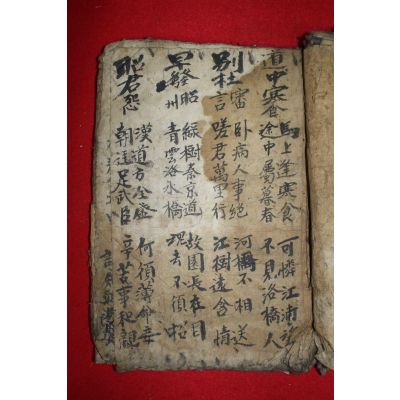 道中寒食
馬上逢寒食 可憐江浦望
途中屬暮春 不見洛橋人
別杜審言
臥病人事絶 河橋不相送
嗟君萬里行 江樹遠含情
早發昭州
綠樹秦京道 故園長在目
青雲洛水橋 魂去不須招
昭君怨
漢道方全盛 何須薄命妾
朝廷足武臣 辛苦事和親